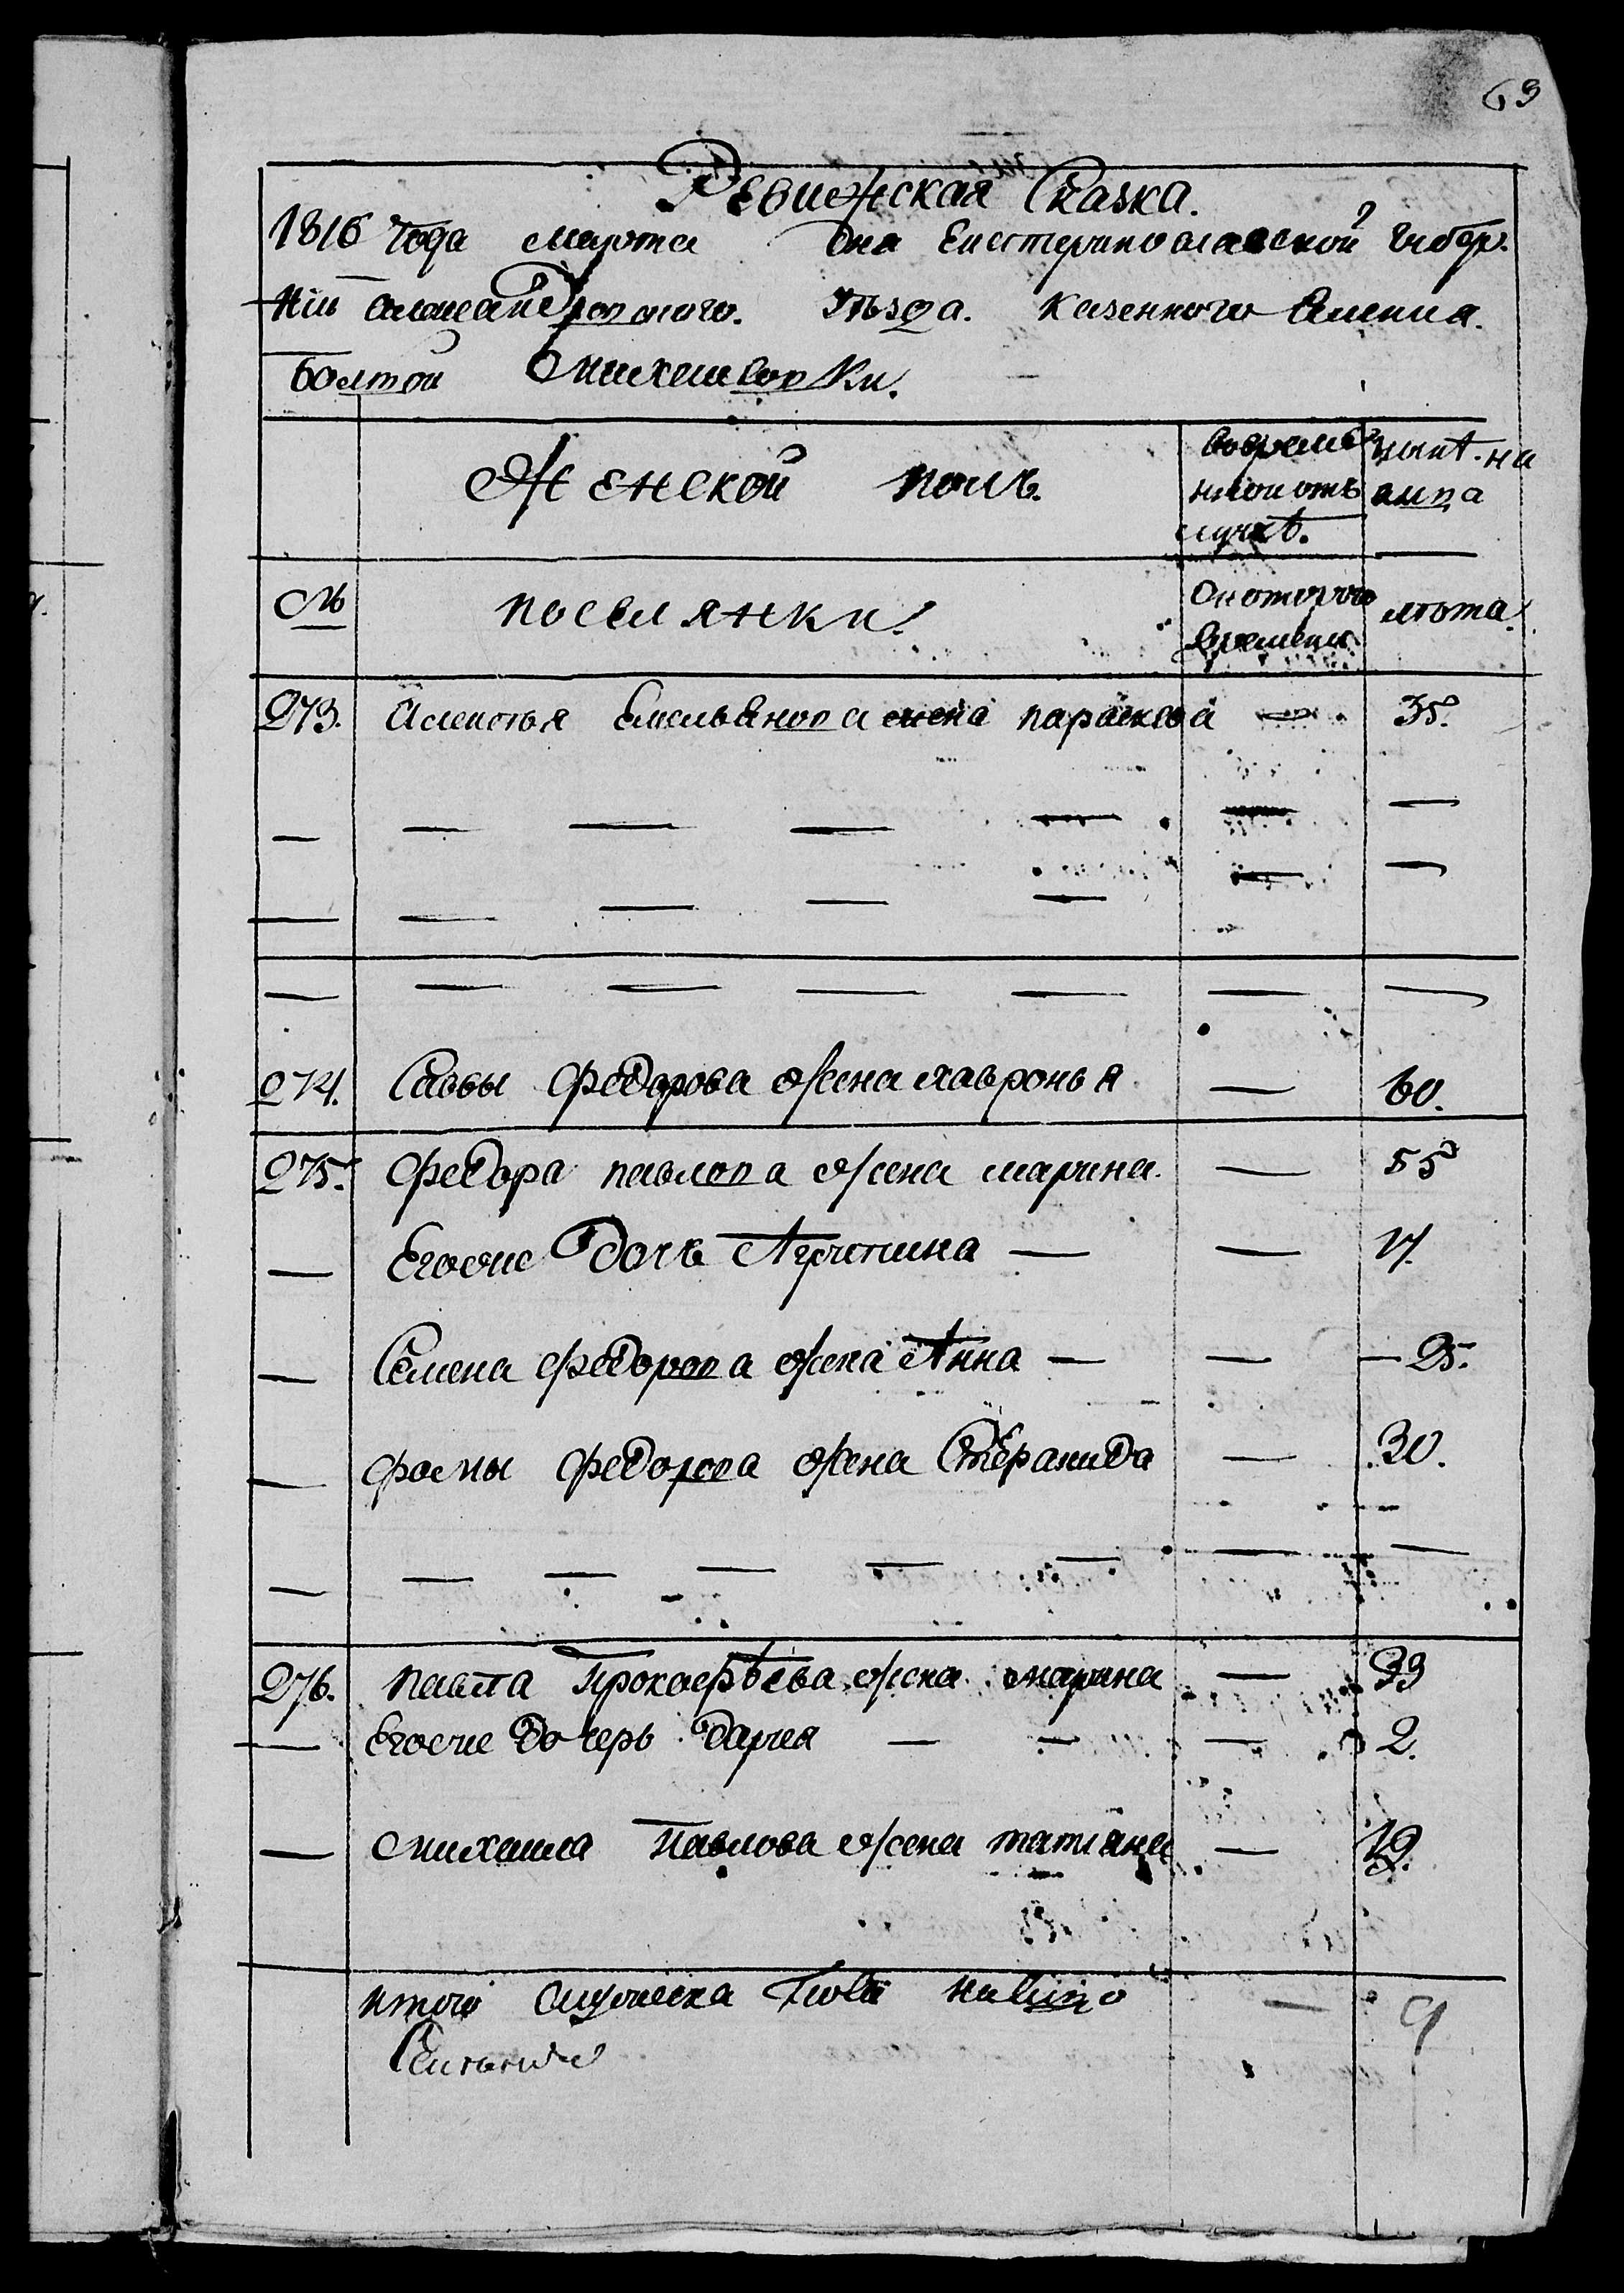 69
Ревижская Сказка.
1816 года марта дня Екатеринославской Губер.
ніи Александровского. уезда. казенного Селения.
болшой Михаиловки.
Женской полъ.
Вовремѣнной отлучкѣ.
нынѣ на лицо
№
поселянки.
Скоторого времени.
лѣта.
273. Емельянова жена параскева — 35.
— — — — — — —
— — — — — — —
— — — — — — —
274. Саввы Федорова жена лавронья — 60.
275. Федора павлова жена марина. — 55
— Егоже дочь Агрипина — — 17.
— Семена Федорова жена Анна — — — 25.
— фомы Федорова жена Степанида — 30.
— — — — — — — —
276. павла Прокофьева жена марина — 39
— Егоже дочерь дария — — — 2.
— михаила Павлова жена татіана — 19.
итого женска пола налицо — 9